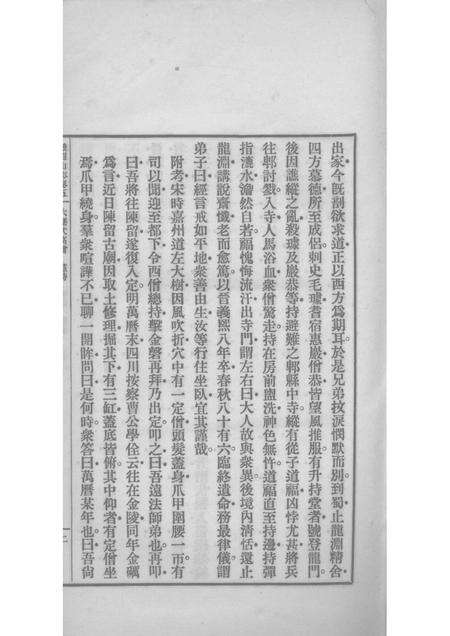 出家今旣割欲求道正以西方爲期耳於是兄弟抆淚憫默而別到蜀止龍淵精舍
四方慕德所至成侶刺史毛璩耆宿惠嚴僧恭皆望風推服有升持堂者號登龍門
後因譙縱之亂殺璩及嚴恭等持避難之郫縣中寺縱有從子道福凶悖尤甚將兵
往郫討戮入寺人馬浴血衆僧驚走持在房前盥洗神色無忤道福直至持邊持彈
指漉水澹然自若福愧悔流汗出寺門謂左右曰大人故與衆異後境內淸恬還止
龍淵講說齋懺老而愈篤以晉義熙八年卒春秋八十有六臨終遺命務最律儀謂
弟子曰經言戒如平地衆善由生汝等行住坐臥宜其謹哉
附考宋時嘉州道左大樹因風吹折穴中有一定僧頭髮蓋身爪甲圍腰一帀有
司以聞迎至都下令西僧總持擊金磬再拜乃出定叩之曰吾遠法師弟也再叩
曰吾將往陳留遂復入定明萬曆末四川按察曹公學佺云往在金陵同年金礪
爲言近日陳留古廟因取土修理掘其下有三缸蓋底皆俯其中仰者有定僧坐
焉爪甲繞身羣衆喧譁不已聊一開眸問曰是何時衆答曰萬曆某年也曰吾尙